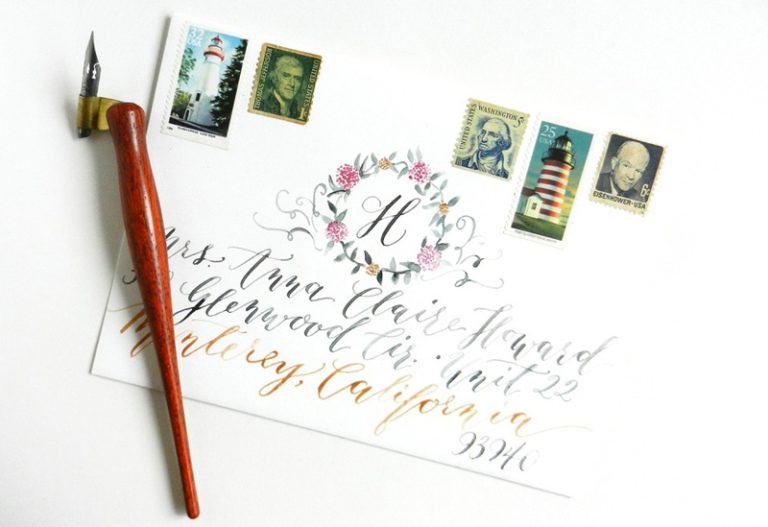 32
USA
THOMAS JEFFERSON
UNITED STATES
UNITED STATES
WASHINGTON 5¢
25
USA
EISENHOWER·USA
6¢
H
Mrs. Anna Claire Howard
Glenwood Cir. Unit 22
Monterey, California
93940